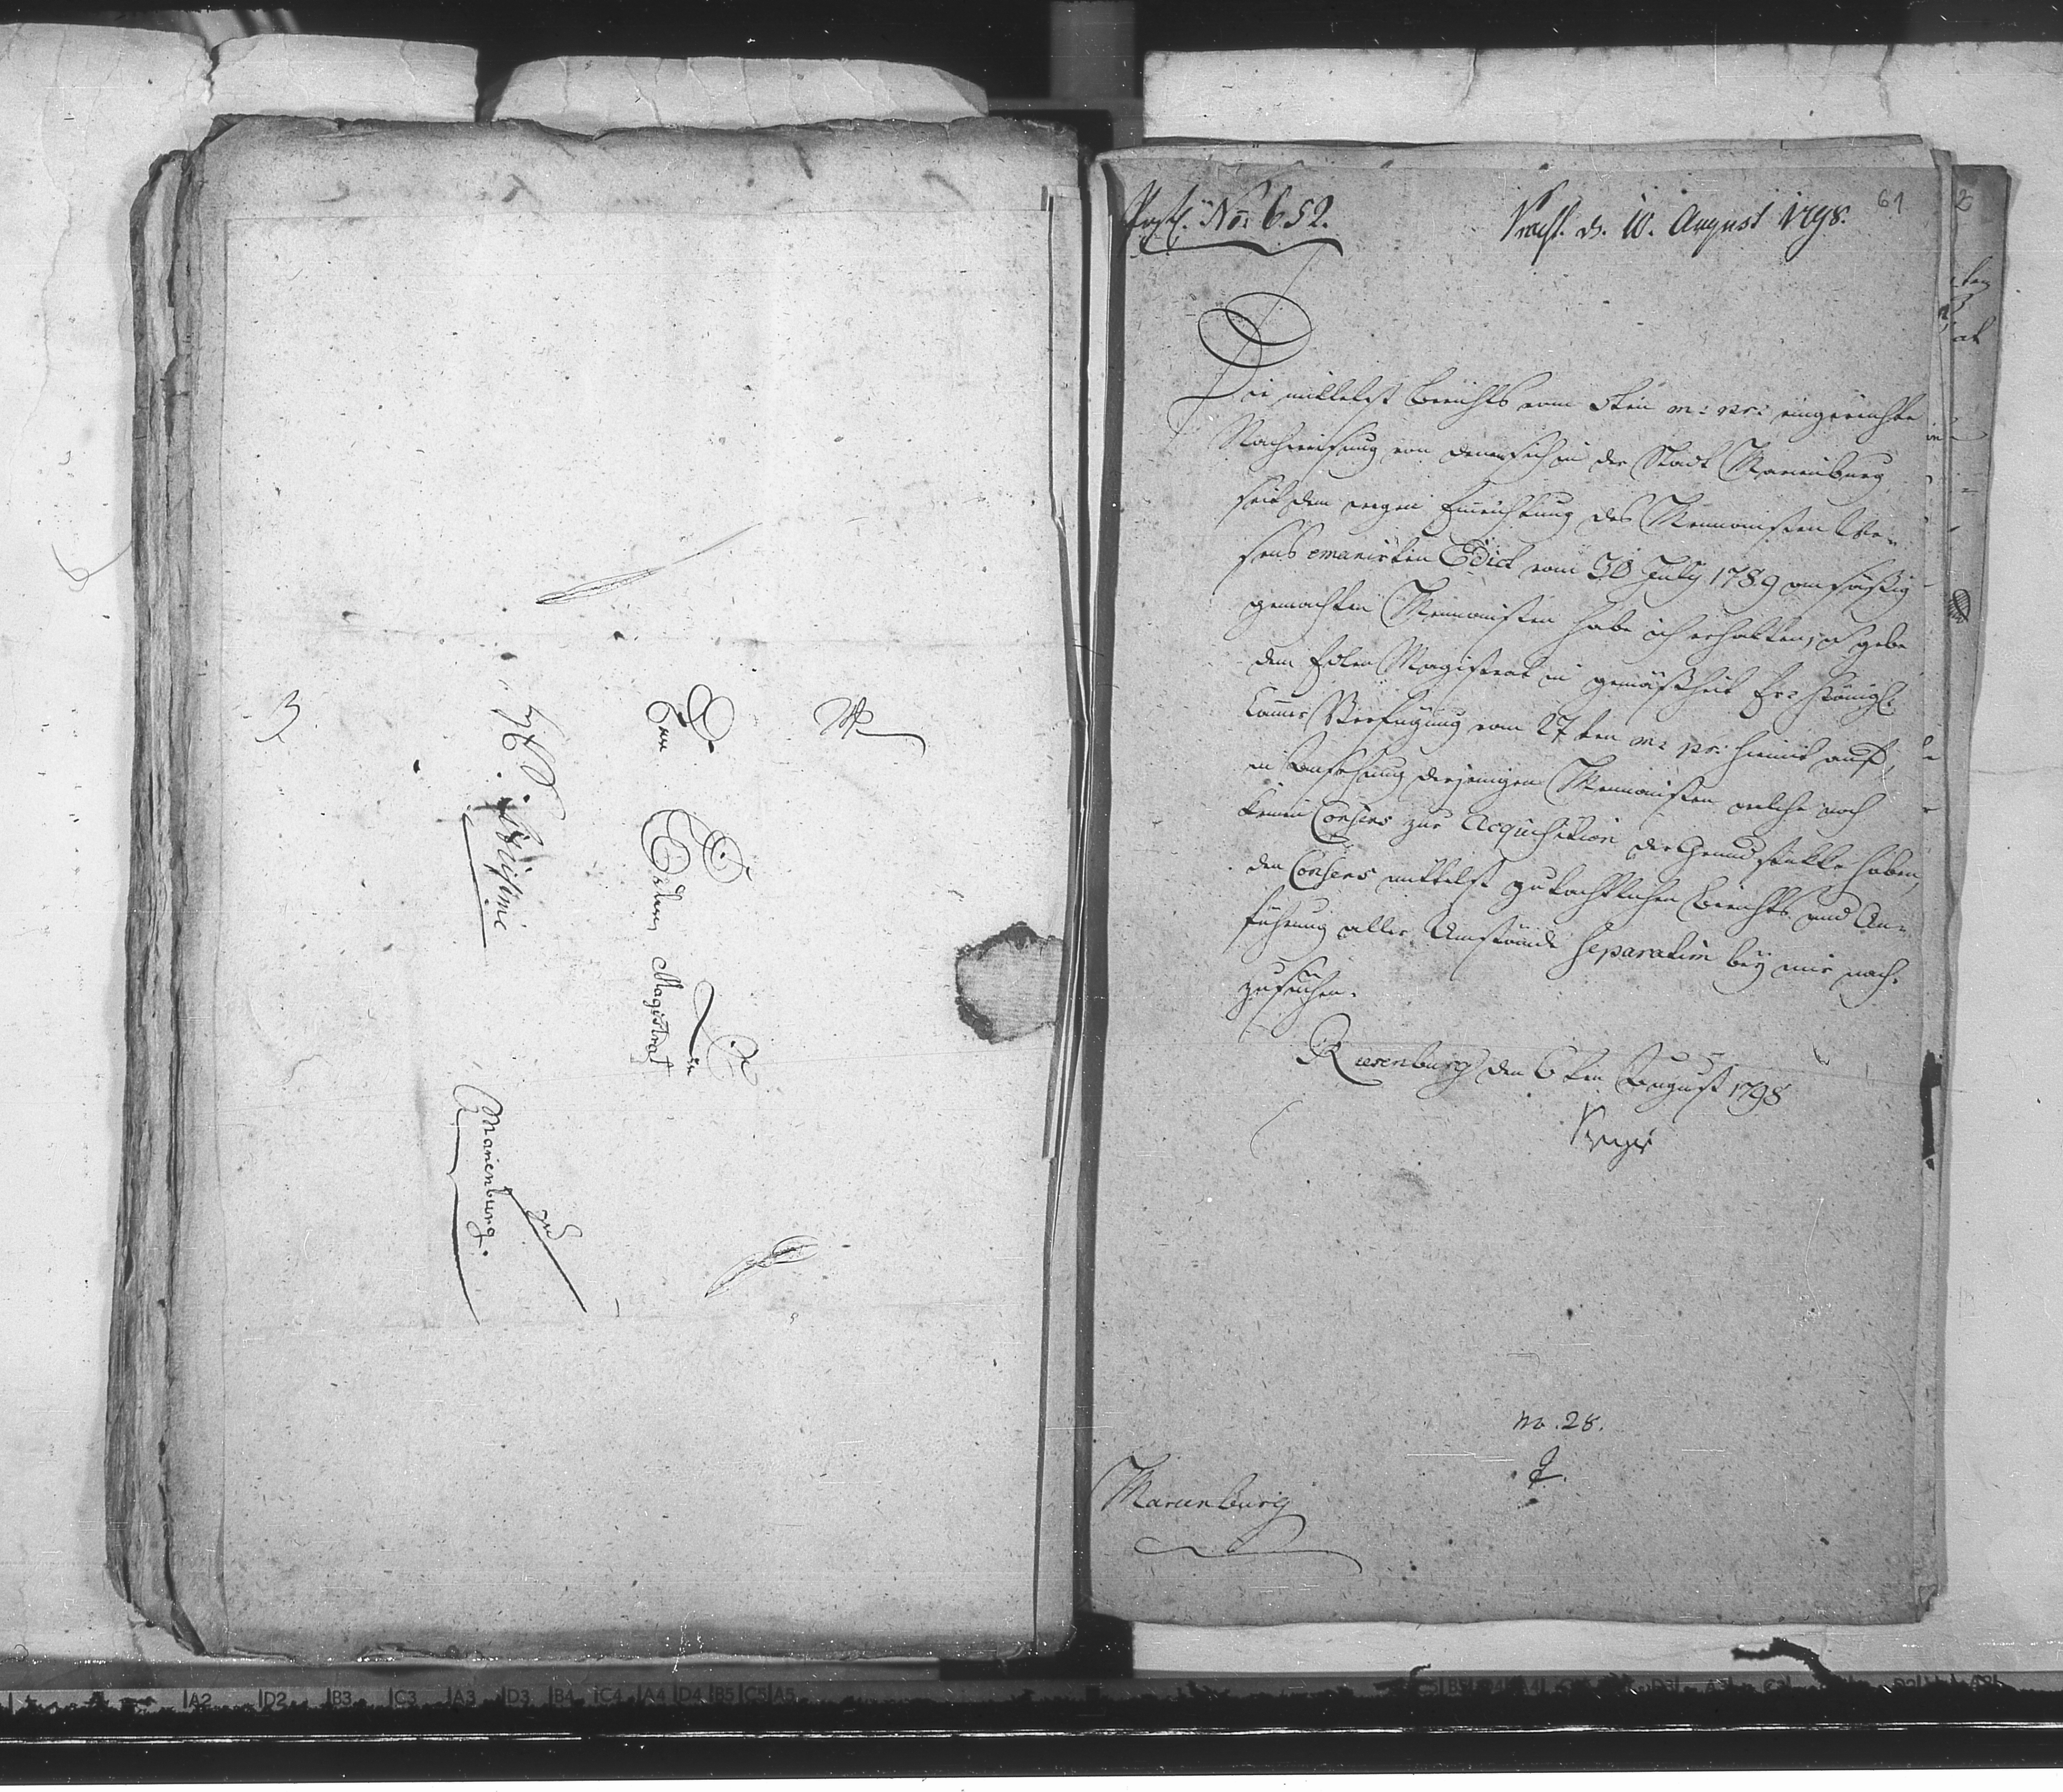 An
Einen Edlen Magistrat
zu
Marienburg.
No: 652.
d. 10. August 1798.
61
Die mittelst Berichts vom 5ten m: pr: eingereichte
Nachweisung von denen sich in der Stadt Marienburg
seit dem wegen Einrichtung des Mennonisten We-
sens emanirten Edict vom 30 July 1789 ansäßig
gemachten Mennonisten habe ich erhalten, u gebe
dem Edlen Magistrat in gemäßheit Er: Königl:
Camer Verfügung vom 27ten m: pr: hiemit auf,
in Ansehung derjenigen Mennonisten welche noch
keinen Consens zur Acquisition der Grundstükke haben,
den Consens mittelst gutachtlichen Berichts und An-
führung aller Umstände separatim bey mir nach-
zusuchen.
Riesenburg den 6ten August 1798
no. 28.
Marienburg